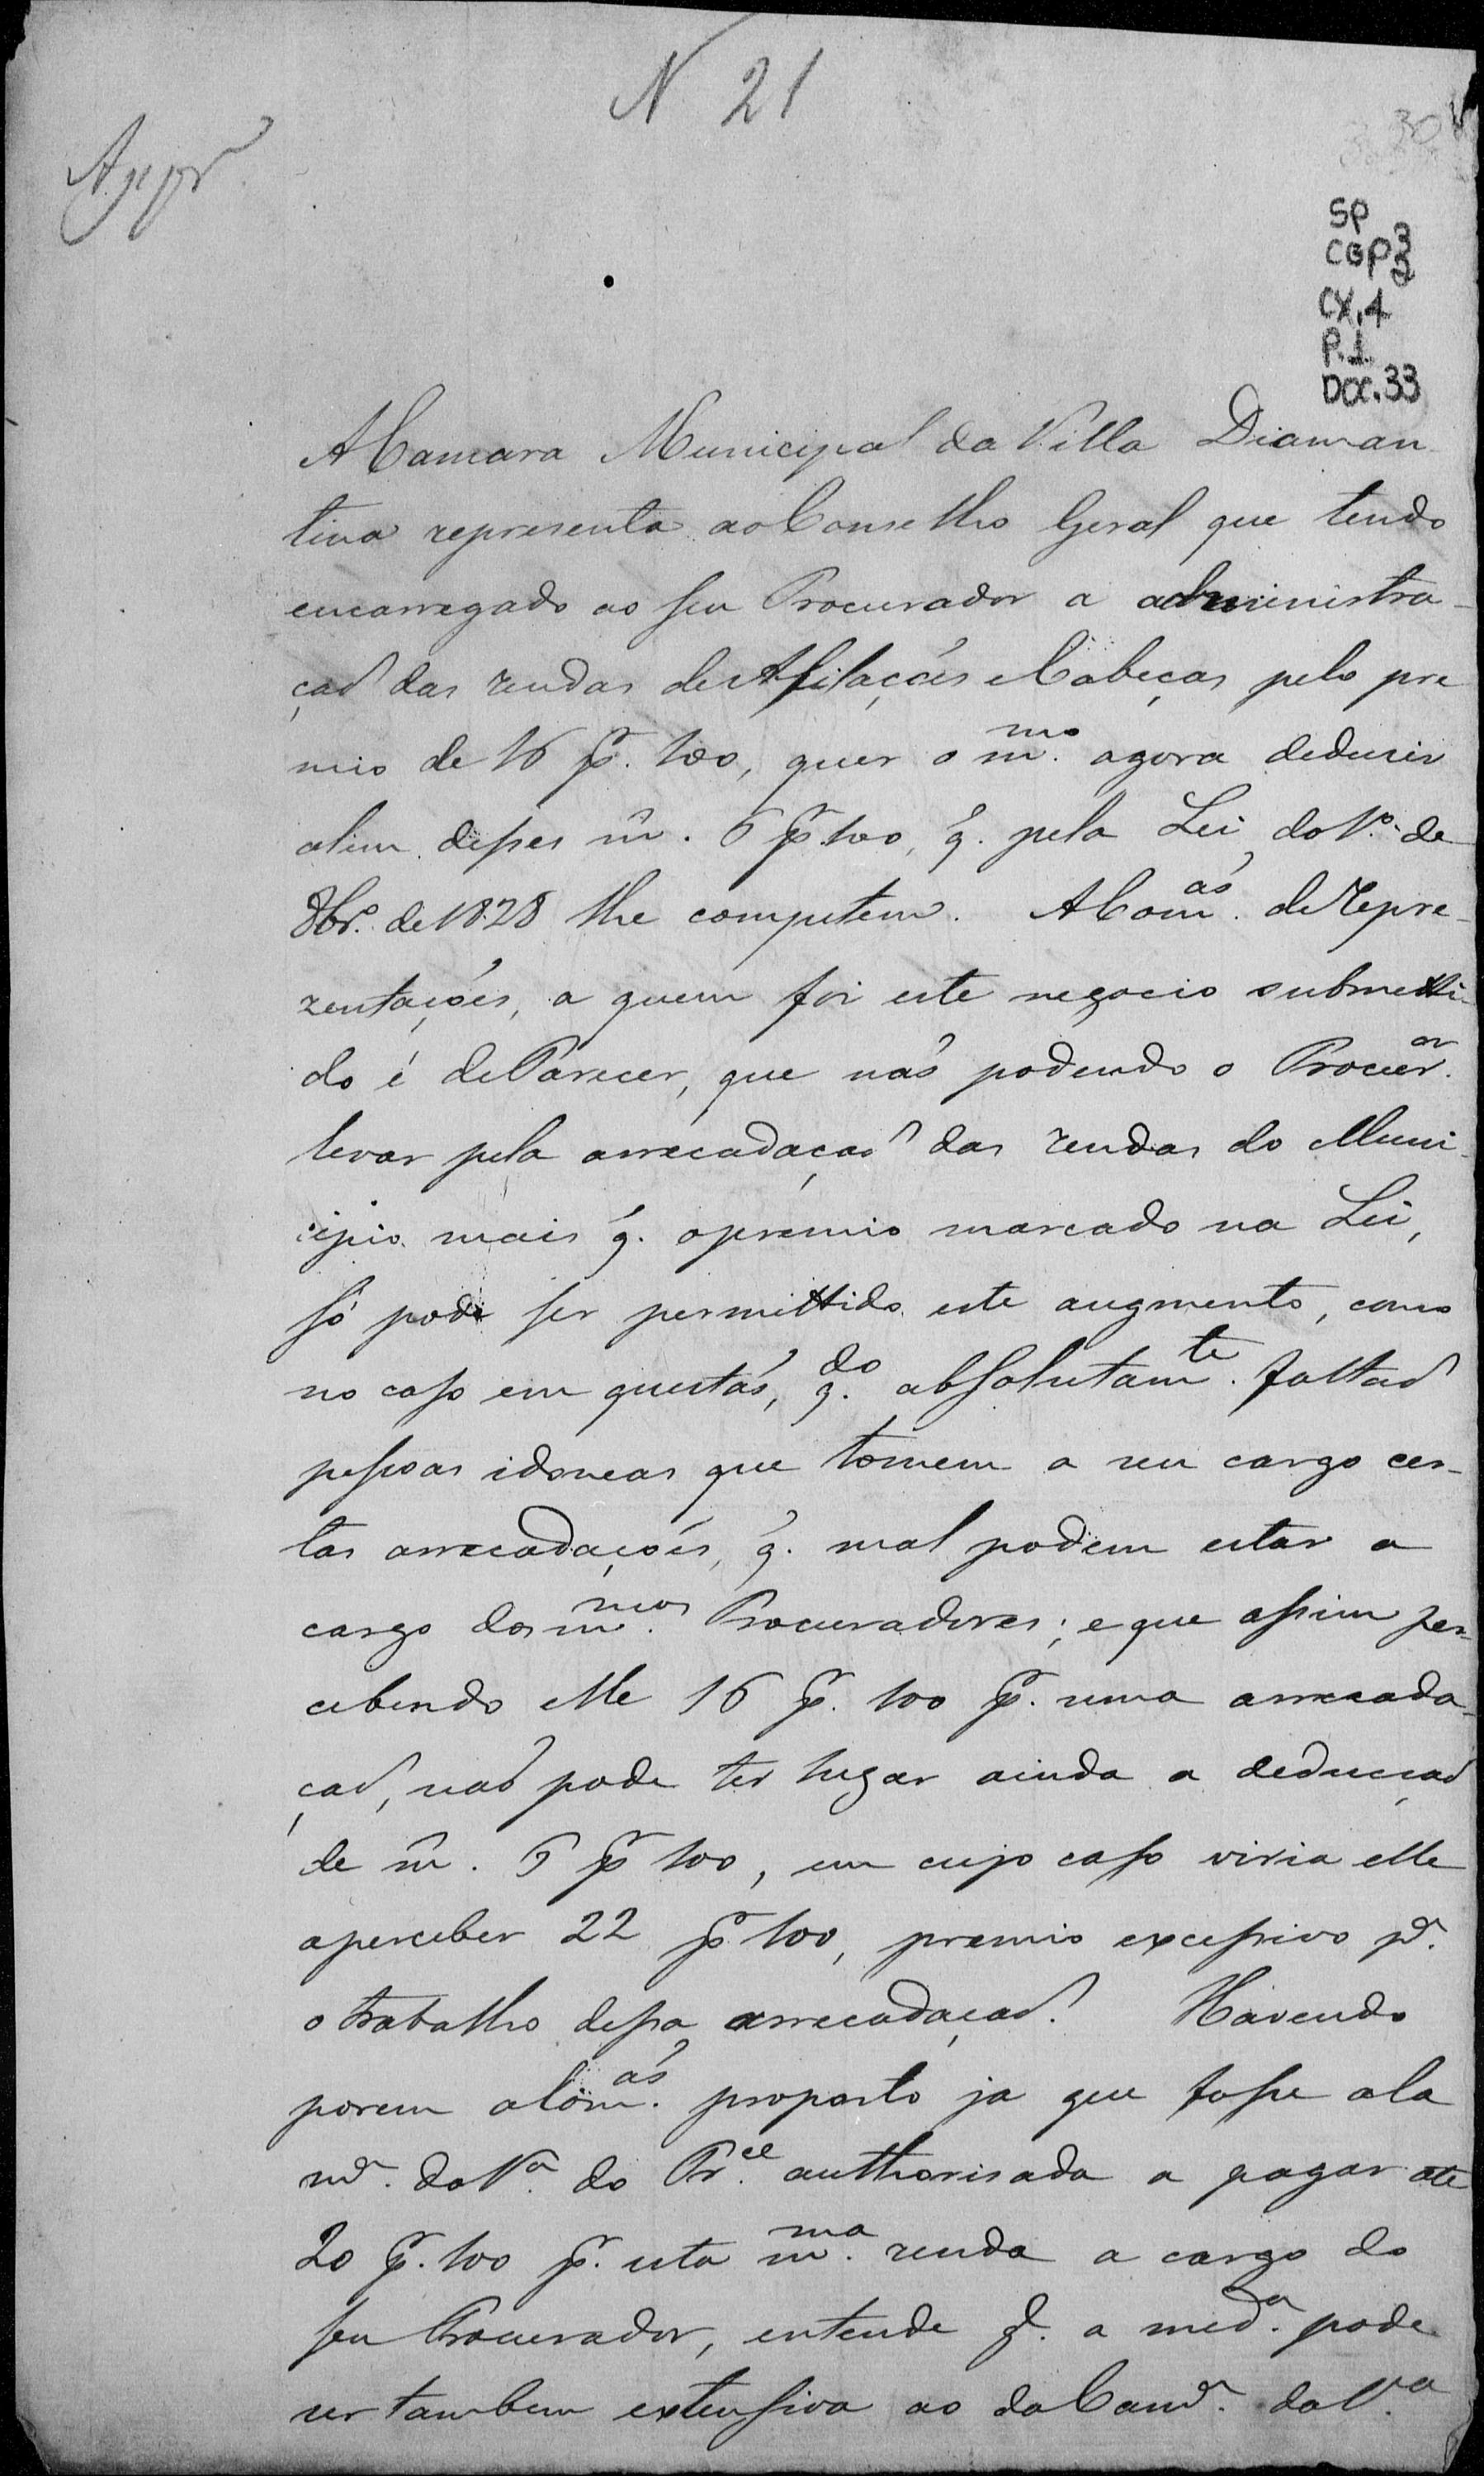 N 21
Appr
SP
CGP3
CX.4
P.1
DOC.33
A Camara Municipal da Villa Diaman
tina representa ao Conselho Geral que tendo
encarregado ao seu Procurador a administra-
çaõ das rendas de Afilaçoẽs e Cabeças pelo pre
mio de 16 p.r 100, quer o m.mo agora deduzir
alem desses m. 6 p.r 100, q. pela Lei do 1.o de
8br.o de 1828 lhe competem. A Com.aõ de Repre-
zentaçoẽs, a quem foi este negocio submetti-
do é de Parecer, que naõ podendo o Procur.or
levar pela arrecadaçaõ das rendas do Muni-
cipio mais q. o premio marcado na Lei,
só pode ser permittido este augmento, como
no caso em questaõ, q.do absolutam.te faltaõ
pessoas idoneas que tomem a seu cargo cer-
tas arrecadaçoẽs, q. mal podem estar a
cargo dos m.mos Procuradores; e que assim per-
cebendo elle 16 p.r 100 p.r uma arrecada-
çaõ, naõ pode ter lugar ainda a deducçaõ
de m. 6 p.r 100, em cujo caso viria elle
a perceber 22 p.r 100, premio excessivo p.a
o trabalho dessa arrecadaçaõ. Havendo
porem a Com.aõ proposto ja que fosse a Ca
m.a da V.a do Pr.ce authorisada a pagar até
20 p.r 100 p.r esta m.ma renda a cargo do
seu Procurador, entende q. a med.a pode
ser tambem extensiva ao da Cam.a da V.a